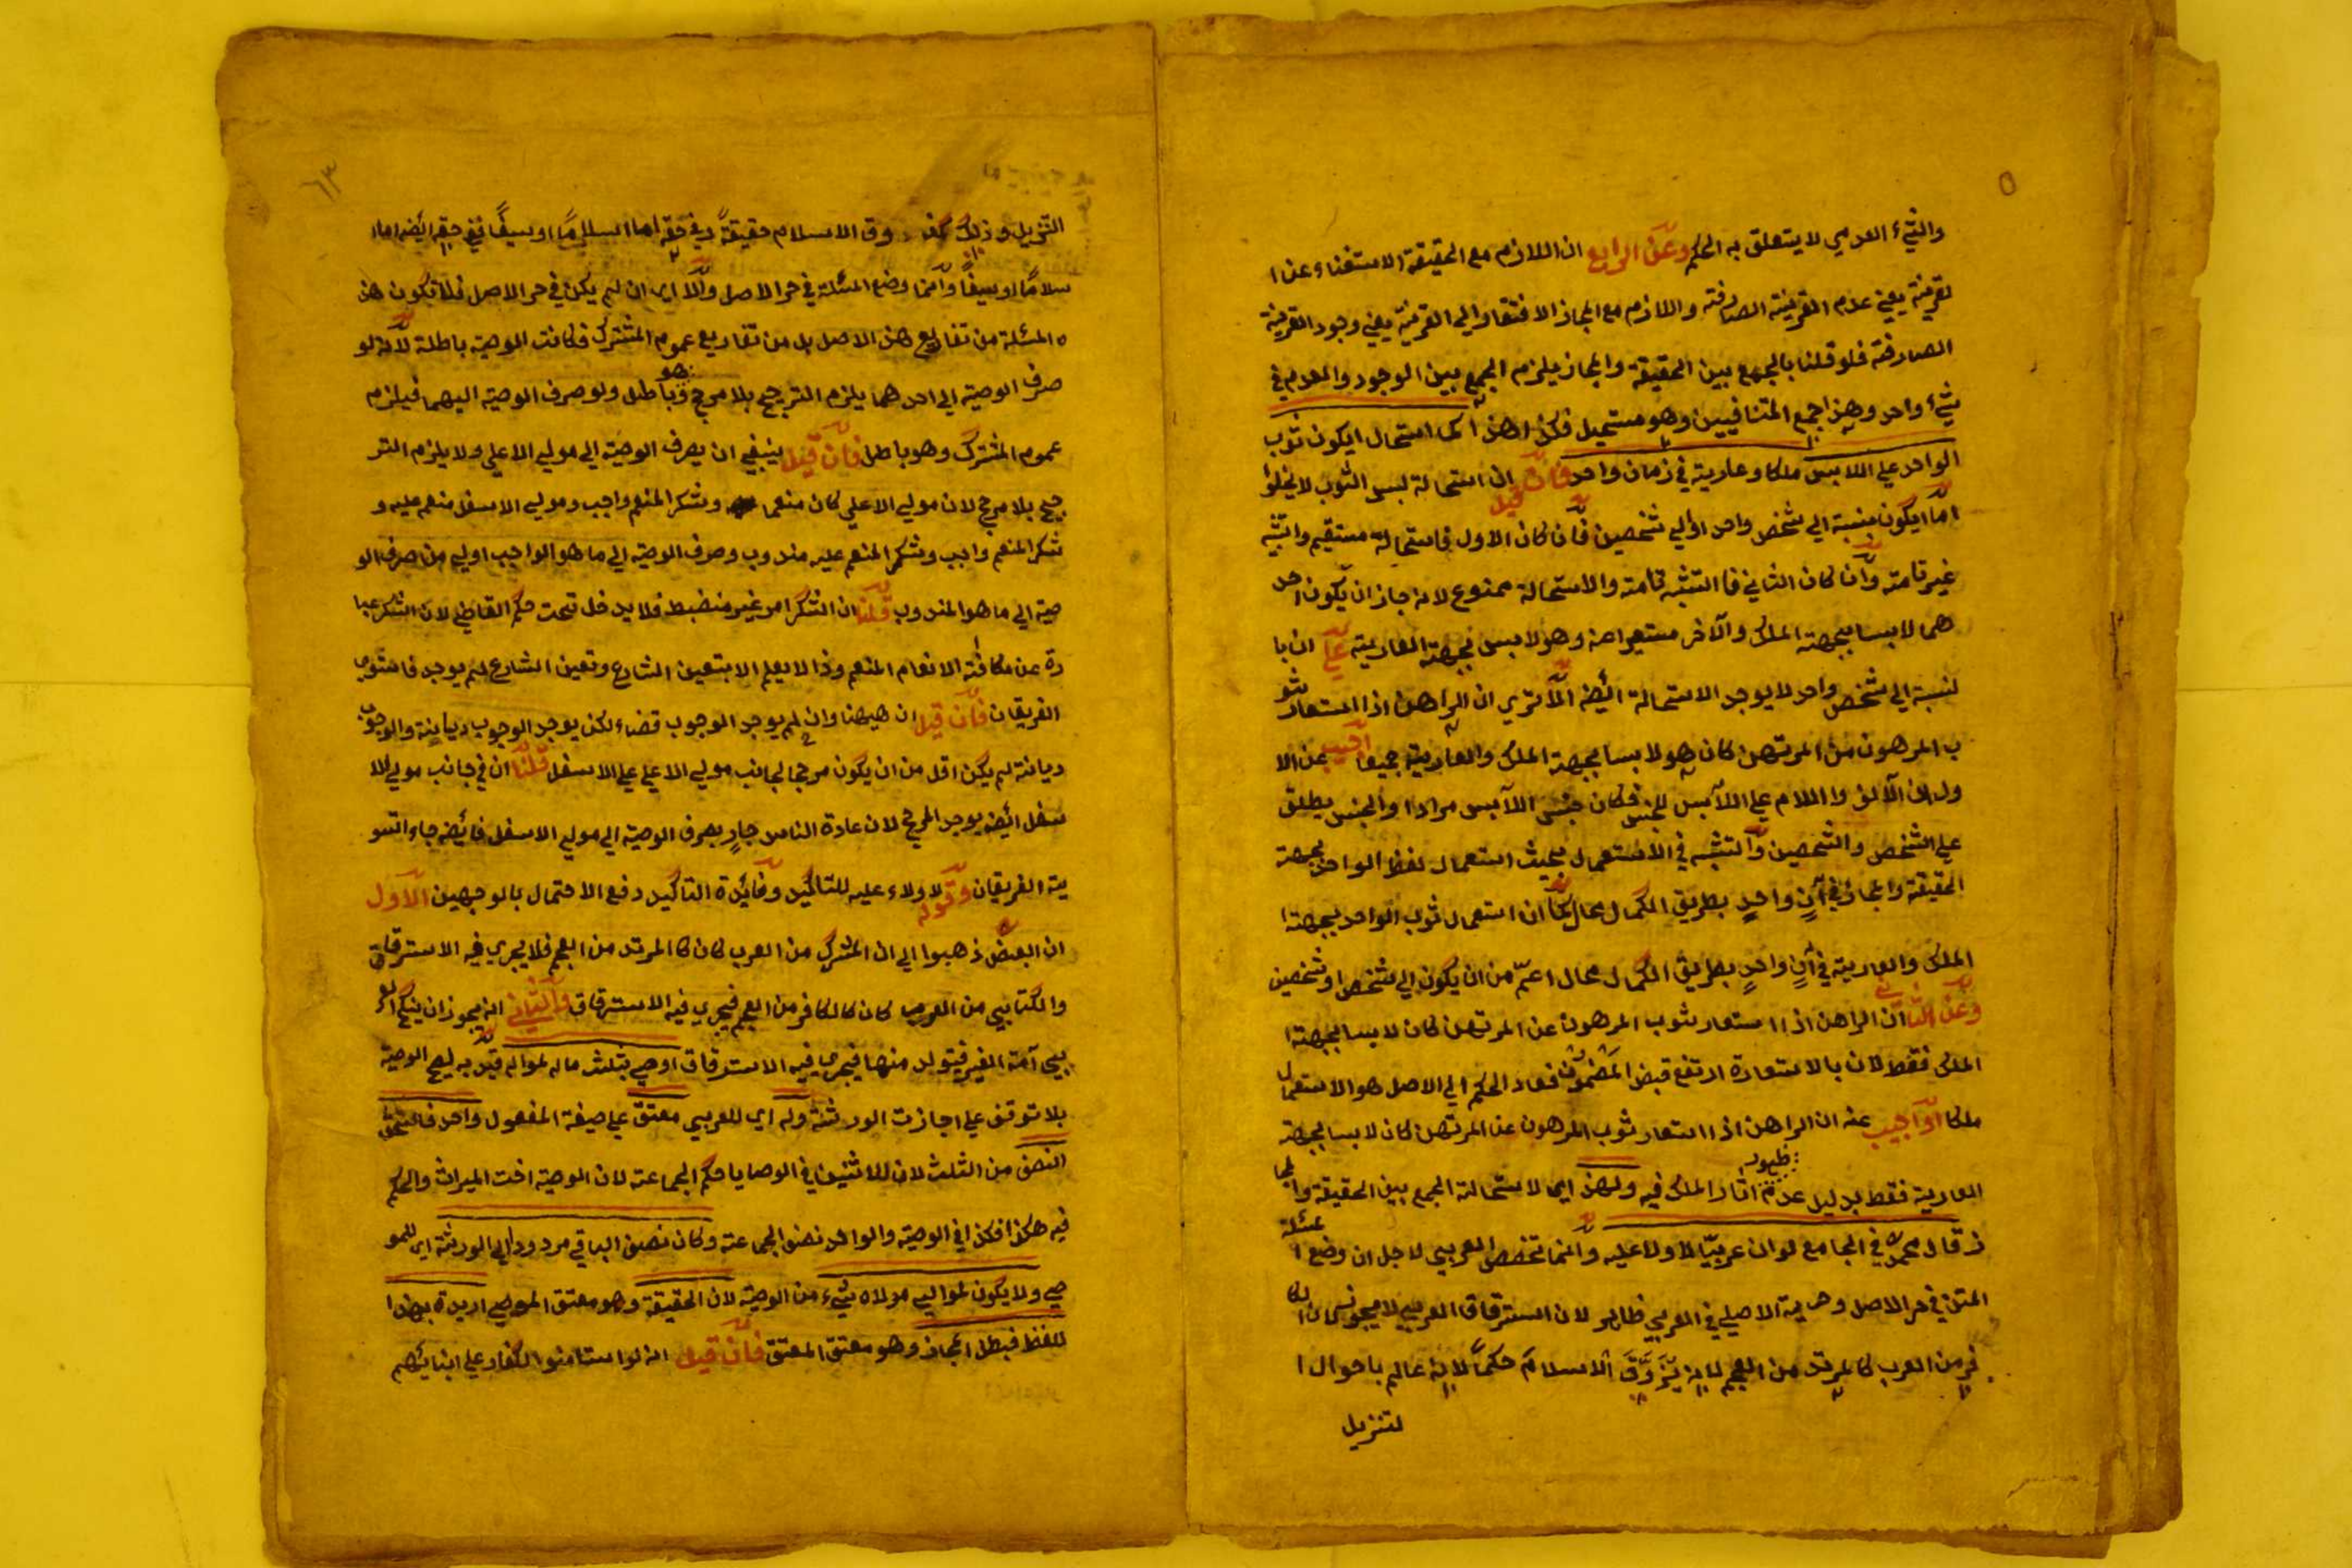 والشيء العدمي لا يتعلق به الحكم وعن الرابع ان اللازم مع الحقيقة الاستغناء عن ا
لقرينة يعني عدم القرينة الصارفة واللازم مع المجاز الافتقار الي القرينة يعني وجود القرينة
الصارفة فلو قلنا بالجمع بين الحقيقة والمجاز يلزم الجمع بين الوجود والعدم في
شيء واحد وهذا جمع المتنافيين وهو مستحيل فكذا هذا كما استحال ان يكون ثوب
الواحد علي اللابس ملكا وعارية في زمان واحد فان قيل ان استحالة لبس الثوب لا يخلوا
اما ان يكون بنسبة الي شخص واحد او الي شخصين فان كان الاول فاستحالة مستقيم والتشبه
غير تامة وان كان الثاني فا التشبه تامة والاستحالة ممنوع لانه جاز ان يكون احد
هما لابسا بجهة الملك والآخر مستعيرا عنه وهو لابس بجهة العارية علي ان با
لنسبة الي شخص واحد لا يوجد الاستحالة ايضا الا تري ان الراهن اذا استعار ثو
ب المرهون من المرتهن كان هو لابسا بجهة الملك والعارية جميعا اجيب عن الا
ول ان الالف واللام علي اللابس للجنس فكان جنس اللابس مرادا والجنس يطلق
علي الشخص والشخصين والتشبه في الاستعمال بحيث استعمال لفظ الواحد بجهة
الحقيقة والمجاز في آن واحد بطريق الكمال محال كما ان استعمال ثوب الواحد بجهة ا
الملك والعارية في آن واحد بطريق الكمال محال اعم من ان يكون الي شخص او شخصين
وعن الثاني ان الراهن اذا استعار ثوب المرهون عن المرتهن كان لابسا بجهة ا
الملك فقط لان بالاستعارة ارتفع قبض المضمون فعاد الحكم الي الاصل هو الاستعمال
ملكا او اجيب عنه ان الراهن اذا استعار ثوب المرهون عن المرتهن كان لابسا بجهة
العارية فقط بدليل عدم ظهور اثار الملك فيه ولهذا اي لاستحالة الجمع بين الحقيقة والمجا
ز قال محمد في الجامع لو ان عربيا لا ولاء عليه وانما تخصص العربي لاجل ان وضع مسئلة ا
المتن في حر الاصل وحرية الاصلي في العربي ظاهر لان استرقاق العربي لا يجوز لان الكا
فر من العرب كالمرتد من العجم لانه الاسلام حكما لانه عالم باحوال ا
لتنزيل
التنزيل وذلك كفر وق الاسلام حقيقة وفي حقه اما اسلاما او سيفا ففي حقه ايضا اما ا
سلاما او سيفا وانما وضع المسئلة في حر الاصل والا اي ان لم يكن في حر الاصل فلا تكون هذ
ه المسئلة من تفاريع هذا الاصل بل من تفاريع عموم المشترك فكانت الوصية باطلة لانه لو
صرف الوصية الي احدهما يلزم الترجيح بلا مرجح وهو باطل ولو صرف الوصية اليهما فيلزم
عموم المشترك وهو باطل فان قيل ينبغي ان يصرف الوصية الي مولي الاعلي ولا يلزم التر
جيح بلا مرجح لان مولي الاعلي كان منعما وشكر المنعم واجب ومولي الاسفل منعم عليه و
شكر المنعم واجب وشكر المنعم عليه مندوب وصرف الوصية الي ما هو الواجب اولي من صرف الو
صية الي ما هو المندوب قلنا ان الشكر امر غير منضبط فلا يدخل تحت حكم القاضي لان الشكر عبا
رة عن مكافئة الانعام المنعم وذا لا يعلم الا بتعين الشارع وتعين الشارع لم يوجد فاستوي
الفريقان فان قيل ان ههنا وان لم يوجد الوجوب قضاء لكن يوجد الوجوب ديانة والوجوب
ديانة لم يكن اقل من ان يكون مرجحا لجانب مولي الاعلي علي الاسفل قلنا ان في جانب مولي الا
سفل ايضا يوجد المرجح لان عادة الناس جار بصرف الوصية الي مولي الاسفل فايضا جاء التسو
ية الفريقان وقوله لا ولاء عليه للتاكيد وفائدة التاكيد دفع الاحتمال بالوجهين الاول
ان البعض ذهبوا الي ان المشرك من العرب كان كالمرتد من العجم فلا يجري فيه الاسترقاق
والكتابي من العرب كان كالكافر من العجم فيجري فيه الاسترقاق والثاني انه يجوز ان ينكح العر
بي امة الغير فيتولد منها فيجري فيه الاسترقاق اوصي بثلث ماله لمواليه قيد به ليصح الوصية
بلا توقف علي اجازت الورثة وله اي للعربي معتق علي صيغة المفعول واحد فاستحق
النصف من الثلث لان للاثنين في الوصايا حكم الجماعة لان الوصية اخت الميراث والحكم
فيه هكذا فكذا في الوصية والواحد نصف الجماعة وكان نصف الباقي مردودا الي الورثة اي للمو
صي ولا يكون لموالي مولاه شيء من الوصية لان الحقيقة وهو معتق الموصي اريدة بهذا ا
للفظ فبطل المجاز وهو معتق المعتق فان قيل انه لو استامنوا الكفار علي ابنائهم